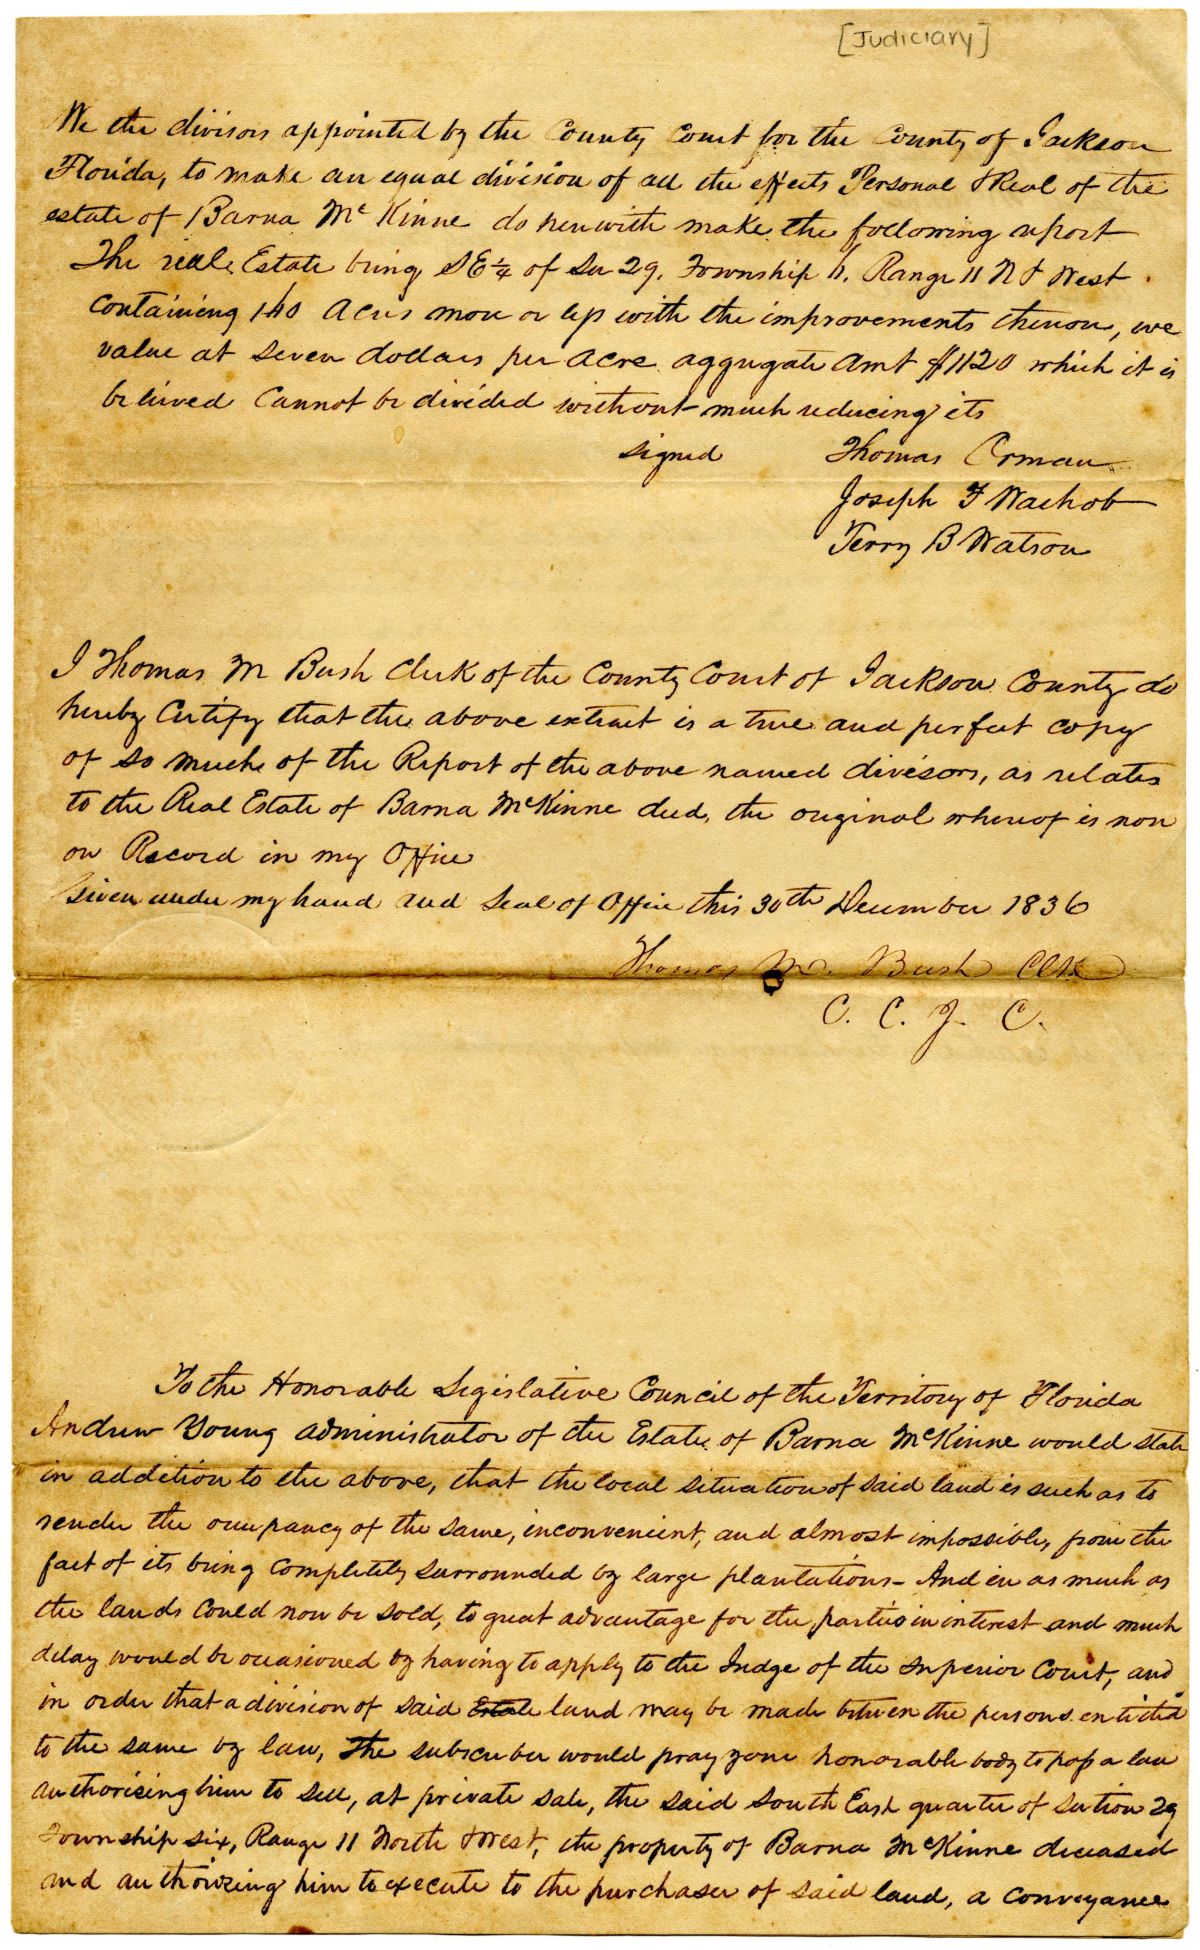 [Judiciary]
We the divisors appointed by the County Court for the County of Jackson
Florida, to make an equal division of all the effects Personal & Real of the
estate of Barna McKinne do herewith make the following report
The real Estate being SE ¼ of Sec 29. Township 6. Range 11 N & West
Containing 160 Acres more or less with the improvements thereon, we
value at Seven dollars per Acre aggregate Amt $1120 which it is
believed Cannot be divided without much reducing its
signed Thomas Orman
Joseph F Wachob
Terry B Watson
I Thomas M Bush Clerk of the County Court of Jackson County do
hereby Certify that the above extract is a true and perfect copy
of so much of the Report of the above named divisors, as relates
to the Real Estate of Barna McKinne decd, the original whereof is now
on Record in my Office
Given under my hand and Seal of Office this 30th December 1836
Thomas M. Bush Clk
C. C. J. C.
To the Honorable Legislative Council of the Territory of Florida
Andrew Young administrator of the Estate of Barna McKinne would state
in addition to the above, that the local situation of said land is such as to
render the occupancy of the same, inconvenient, and almost impossible, from the
fact of its being Completely surrounded by large plantations - And in as much as
the lands could now be sold, to great advantage for the parties in interest and much
delay would be occasioned by having to apply to the Judge of the Superior Court, and
in order that a division of said Estate land may be made between the persons entitled
to the same by law, The subscriber would pray your honorable body to pass a law
authorising him to sell, at private sale, the said South East quarter of section 29
Township six, Range 11 North & West, the property of Barna McKinne deceased
and authorizing him to execute to the purchaser of said land, a conveyance